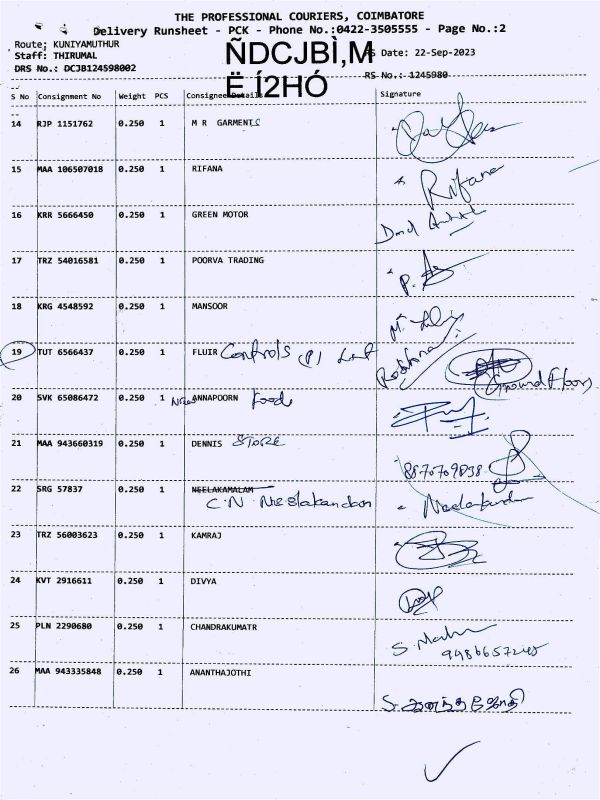 THE PROFESSIONAL COURIERS, COIMBATORE
Delivery Runsheet - PCK - Phone No.:0422-3505555 - Page No.:2
Route: KUNIYAMUTHUR
Staff: THIRUMAL
DRS No.: DCJB124598002
ÑDCJBÌ,M
Ë Í2HÓ
RS Date: 22-Sep-2023
RS No.: 1245980
S No Consignment No Weight PCS Consignee Details Signature
14 RJP 1151762 0.250 1 M R GARMENTS
15 MAA 106507018 0.250 1 RIFANA Rifana
16 KRR 5666450 0.250 1 GREEN MOTOR
17 TRZ 54016581 0.250 1 POORVA TRADING
18 KRG 4548592 0.250 1 MANSOOR
19 TUT 6566437 0.250 1 FLUIR Controls (P) Ltd Ground Floor
20 SVK 65086472 0.250 1 ANNAPOORN Foods
21 MAA 943660319 0.250 1 DENNIS STORE 8870709838
22 SRG 57837 0.250 1 NEELAKAMALAM
C.N. Neelakandan
23 TRZ 56003623 0.250 1 KAMRAJ
24 KVT 2916611 0.250 1 DIVYA
25 PLN 2290680 0.250 1 CHANDRAKUMATR
26 MAA 943335848 0.250 1 ANANTHAJOTHI